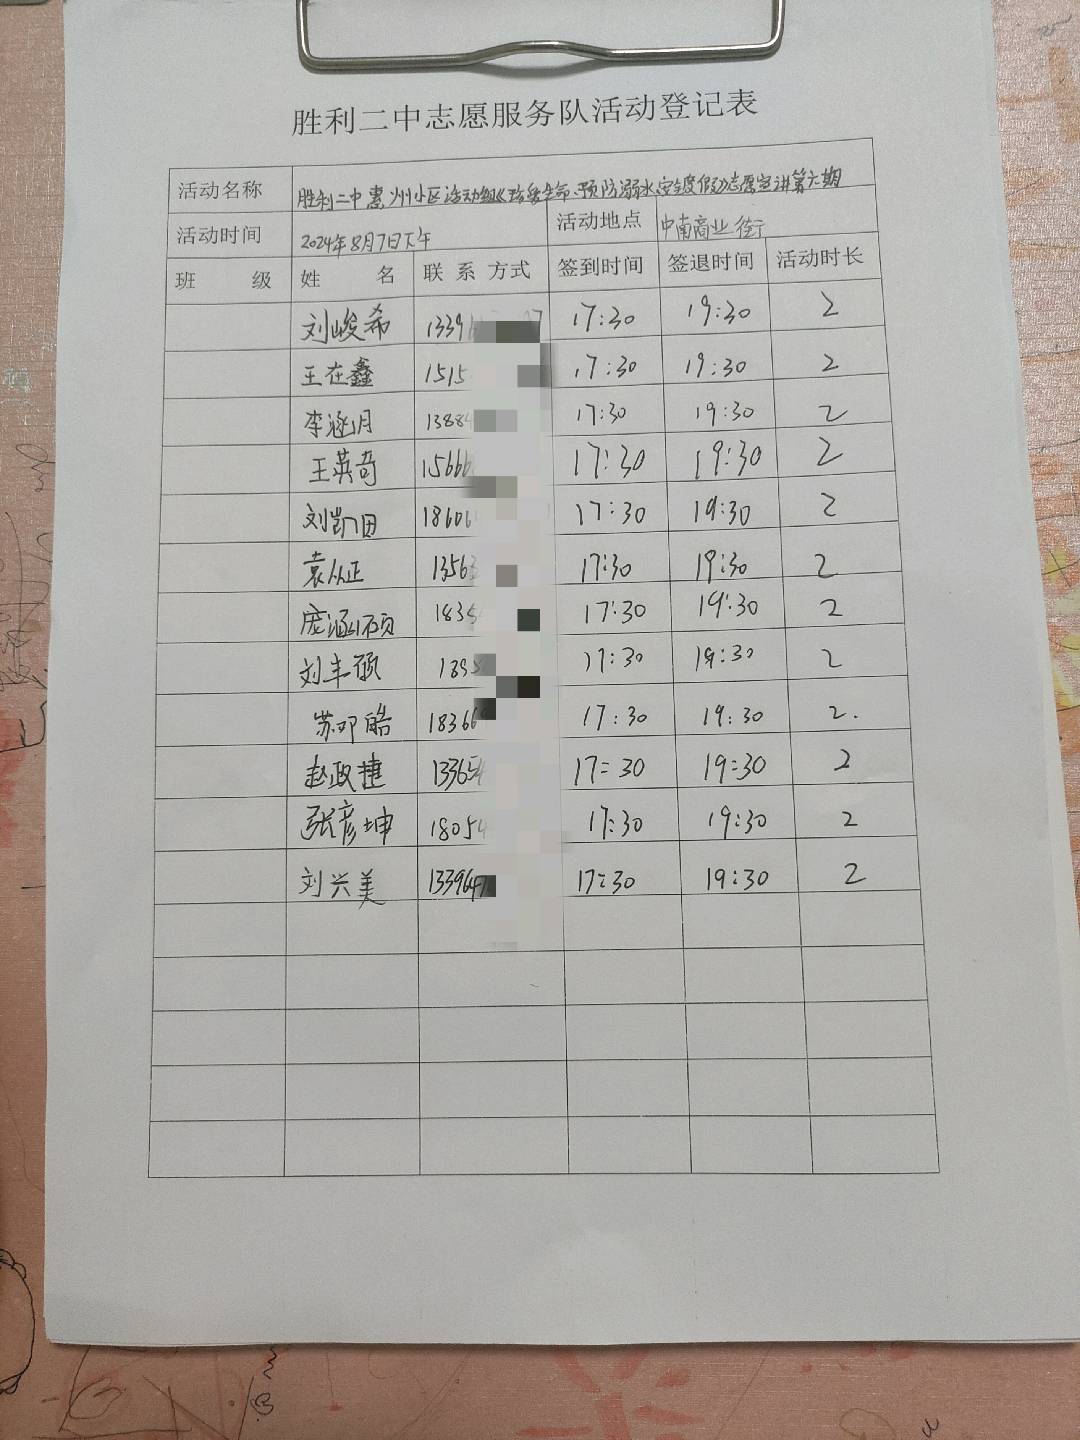 胜利二中志愿服务队活动登记表
活动名称 胜利二中惠州小区活动组《珍爱生命、预防溺水,安全度假》志愿宣讲第六期
活动时间 2024年8月7日下午 活动地点 中南商业街
班 级 姓 名 联系方式 签到时间 签退时间 活动时长
刘峻希 1339 17:30 19:30 2
王在鑫 1515 17:30 19:30 2
李涵月 1388 17:30 19:30 2
王英奇 15666 17:30 19:30 2
刘凯田 1860 17:30 19:30 2
袁从正 1356 17:30 19:30 2
庞涵硕 1835 17:30 19:30 2
刘丰硕 17:30 19:30 2
苏邓皓 1836 17:30 19:30 2.
赵政捷 13365 17:30 19:30 2
张彦坤 18054 17:30 19:30 2
刘兴美 133964 17:30 19:30 2